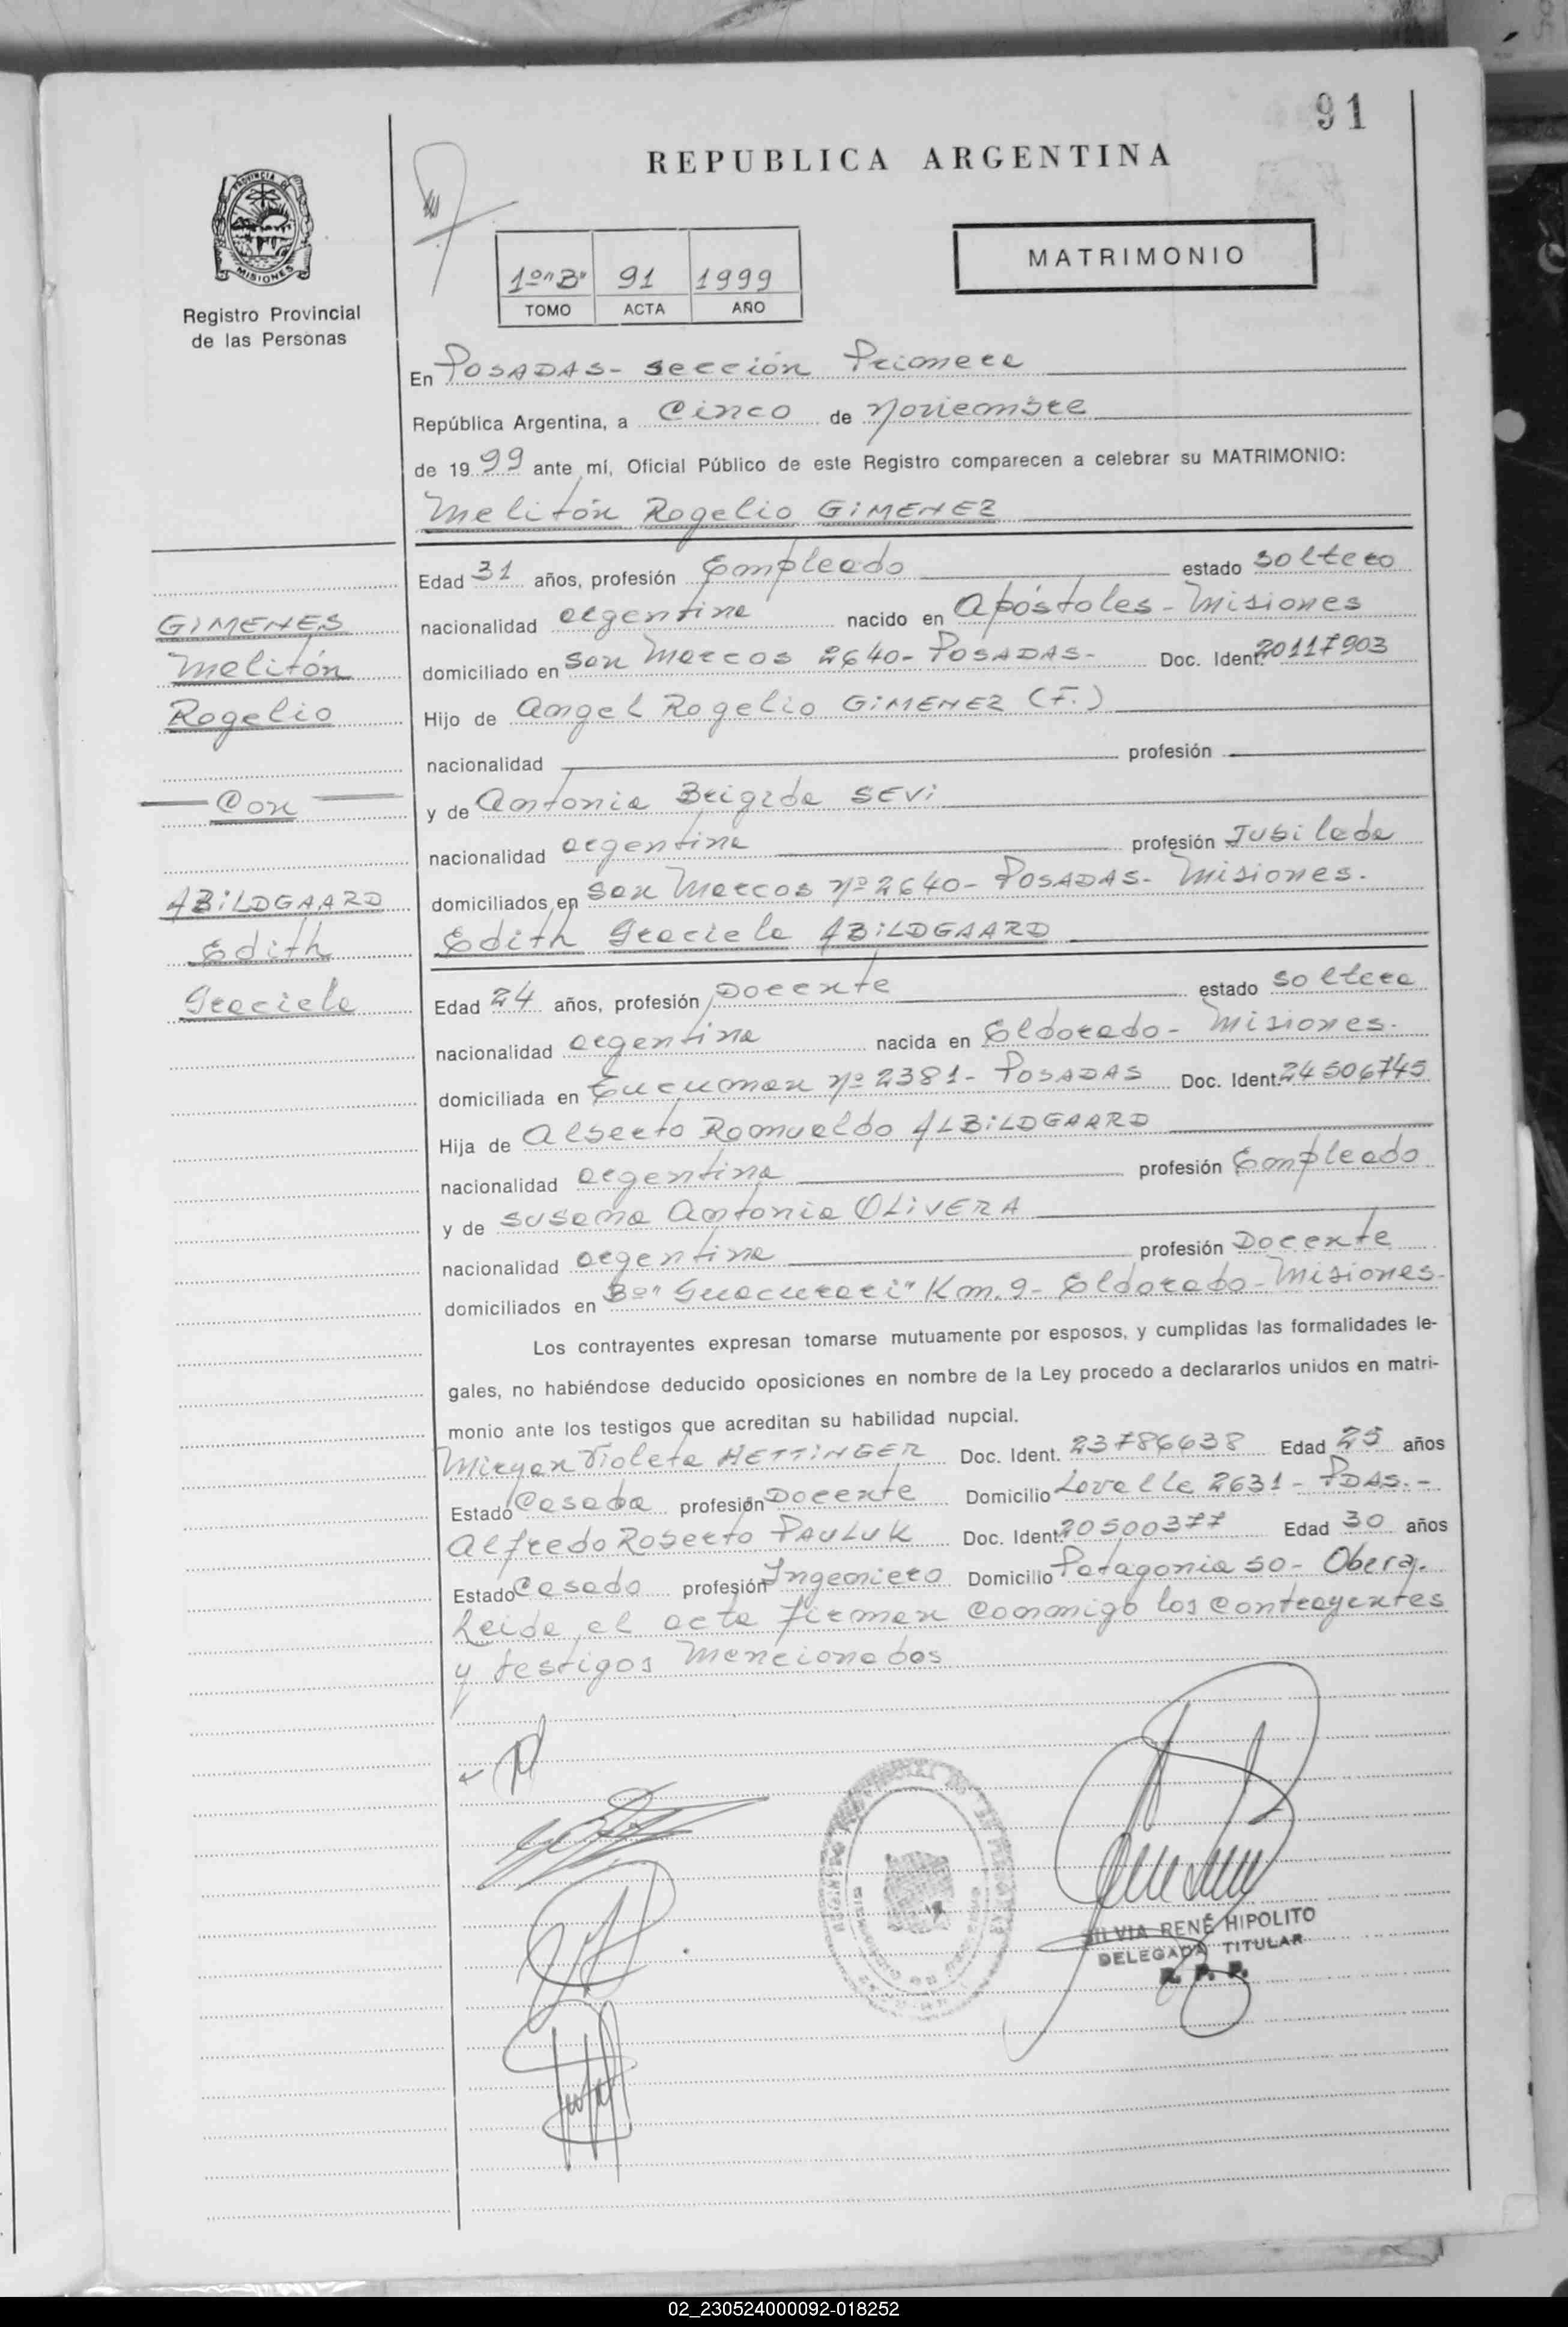 91
REPUBLICA ARGENTINA
PROVINCIA DE
MISIONES
Registro Provincial
de las Personas
MATRIMONIO
1º "B" 91 1999
TOMO ACTA AÑO
En POSADAS - sección Primera
República Argentina, a Cinco de Noviembre
de 1999 ante mí, Oficial Público de este Registro comparecen a celebrar su MATRIMONIO:
Melitón Rogelio GIMENEZ
Edad 31 años, profesión Empleado estado soltero
nacionalidad argentina nacido en Apóstoles - Misiones
domiciliado en San Marcos 2640 - POSADAS - Doc. Ident. 20117903
Hijo de Angel Rogelio GIMENEZ (F.)
nacionalidad profesión
y de Antonia Brigida SEVI
nacionalidad argentina profesión Jubilada
domiciliados en San Marcos nº 2640 - POSADAS - Misiones.
Edith Graciela ABILDGAARD
Edad 24 años, profesión Docente estado soltera
nacionalidad argentina nacida en Eldorado - Misiones.
domiciliada en Tucuman nº 2381 - POSADAS Doc. Ident. 24506745
Hija de Alberto Romualdo ALBILDGAARD
nacionalidad argentina profesión Empleado
y de Susana Antonia OLIVERA
nacionalidad argentina profesión Docente
domiciliados en Bº "Guacurari" Km. 9 - Eldorado - Misiones -
Los contrayentes expresan tomarse mutuamente por esposos, y cumplidas las formalidades le-
gales, no habiéndose deducido oposiciones en nombre de la Ley procedo a declararlos unidos en matri-
monio ante los testigos que acreditan su habilidad nupcial.
Miryan Violeta HETTINGER Doc. Ident. 23786638 Edad 25 años
Estado Casada profesión Docente Domicilio Lavalle 2631 - PDAS. -
Alfredo Roberto PAULUK Doc. Ident. 20500377 Edad 30 años
Estado Casado profesión Ingeniero Domicilio Patagonia 50 - Obera.
Leida el acta firman conmigo los contrayentes
y testigos mencionados
GIMENES
Melitón
Rogelio
Con
ABILDGAARD
Edith
Graciela
SILVIA RENÉ HIPOLITO
DELEGADA TITULAR
R. P. P.
02_230524000092-018252